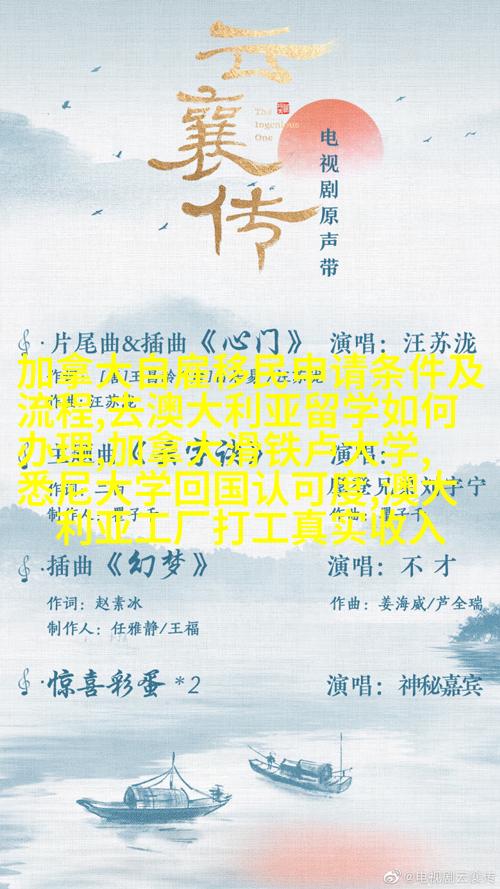 云襄传
The
Ingenious
One
电视剧原声带
片尾曲&插曲《心门》 演唱：汪苏泷
加拿大自雇移民申请条件及
流程,去澳大利亚留学如何
作曲：汪苏泷
办理,加拿大滑铁卢大学,
悉尼大学回国认可度,澳大
利亚工厂打工真实收入
插曲《幻梦》 演唱：不才
作词：赵素冰 作曲：姜海威/芦全瑞
制作人：任雅静/王福
惊喜彩蛋 *2 演唱：神秘嘉宾
@电视剧云襄传